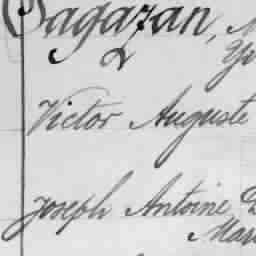 Gagazan,
Victor Auguste
Joseph Antoine